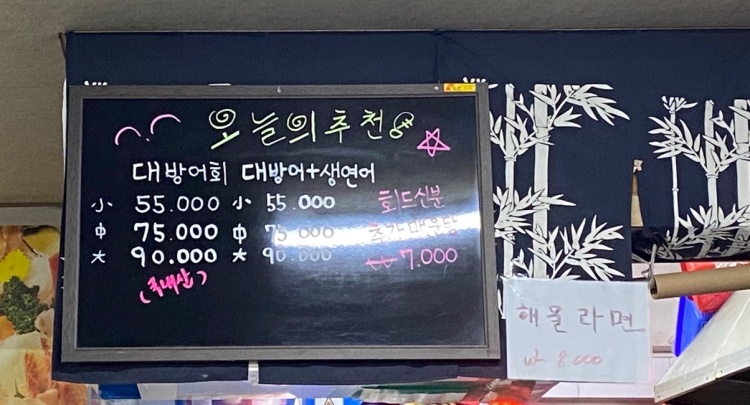 오늘의추천
대방어회 대방어+생연어
小 55.000 小 55.000 회드신분
中 75.000 中 75.000 추가매운탕
大 90.000 大 90.000 7.000
(국내산)
해물라면
₩ 8.000